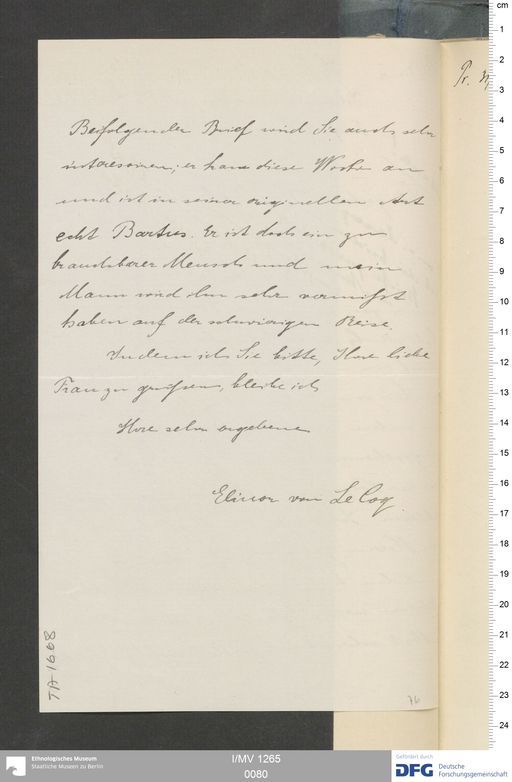 Beifolgender Brief wird Sie auch sehr
interessiren; er kam diese Woche an
und ist in seiner originellen Art
echt Bartus. Er ist doch ein zu
brauchbarer Mensch und mein
Mann wird ihn sehr vermißt
haben auf der schwierigen Reise.
Indem ich Sie bitte, Ihre liebe
Frau zu grüßen, bleibe ich
Ihre sehr ergebene
Elinor von Le Coq.
TA-1668
76
cm
1
2
3
4
5
6
7
8
9
10
11
12
13
14
15
16
17
18
19
20
21
22
23
24
Ethnologisches Museum
Staatliche Museen zu Berlin
I/MV 1265
0080
Gefördert durch
DFG
Deutsche
Forschungsgemeinschaft